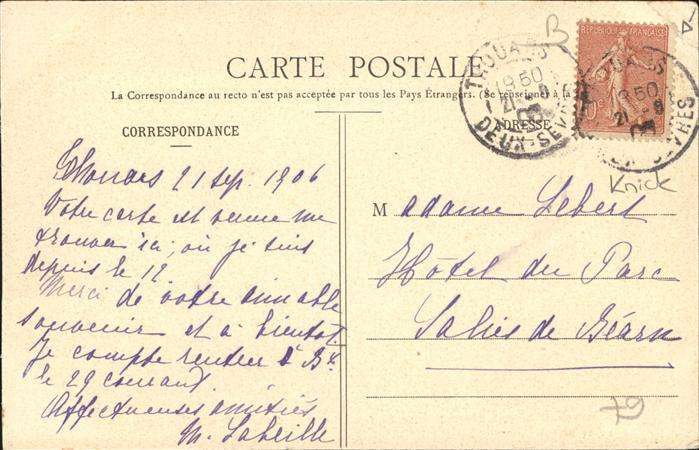 CARTE POSTALE
La Correspondance au recto n'est pas acceptée par tous les Pays Étrangers. (Se renseigner à
CORRESPONDANCE
ADRESSE
RÉPUBLIQUE FRANÇAISE
10c
THOUARS
18 50
21 - 9
DEUX-SEVRES
THOUARS
18 50
21 - 9
DEUX-SEVRES
B
Knick
Thouars 21 sep. 1906
Votre carte est venue me
trouver ici, où je suis
depuis le 12
Merci de votre aimable
souvenir et à bientôt.
Je compte rentrer à Bx
le 29 courant.
Affectueuses amitiés
M. Labeille
Madame Lebert
Hôtel du Parc
Salies de Béarn
79